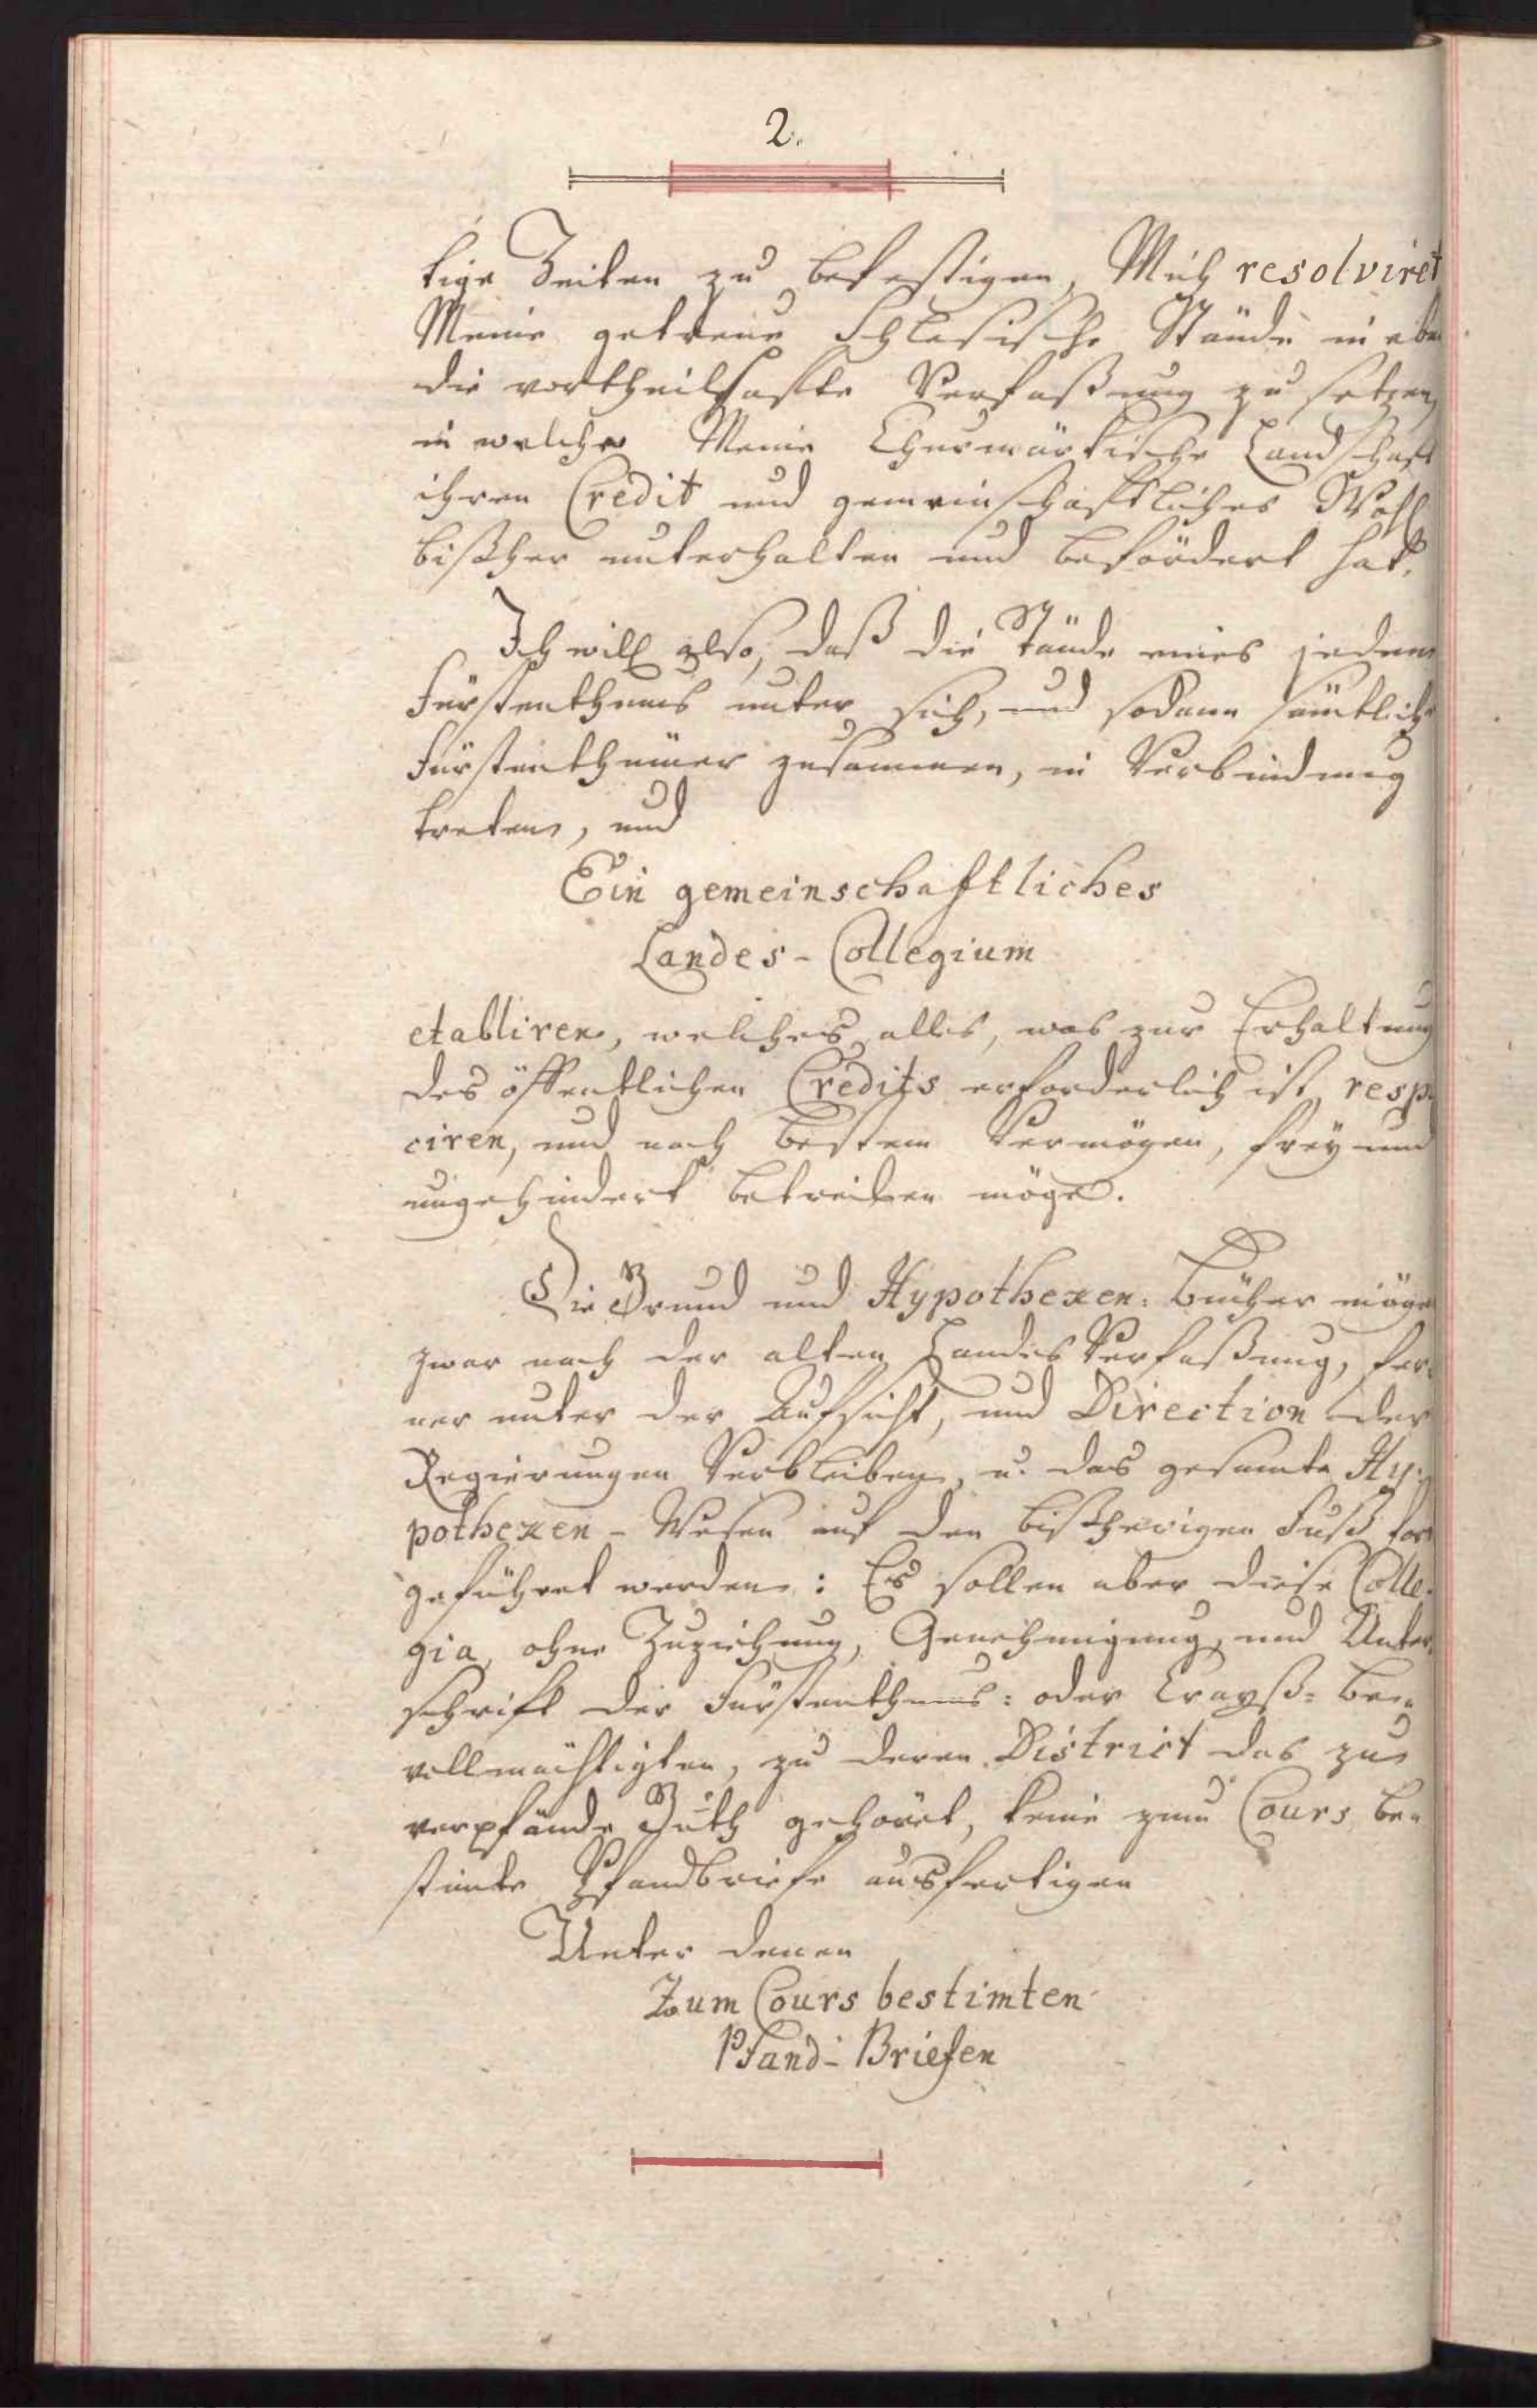 2.
tige Zeiten zu befestigen, Mich resolviret
Meine getreue Schlesische Stände in eben
die vortheilhafte Verfaßung zu setzen,
in welcher Meine Chusmärkische Landschaft
ihren Credit und gemeinschaftliches Wohl
bißher unterhalten und befördert hat.
Ich will also, daß die Stände eines jeden
Fürstenthums unter sich, und sodann sämtliche
Fürstenthümer zusammen, in Verbindung
treten, und
Ein gemeinschaftliches
Landes-Collegium
etabliren, welches alles, was zur Erhaltung
des öffentlichen Credits erforderlich ist, respi
ciren, und nach bestem Vermögen, frey und
ungehindert betreiben möge.
Die Grund und Hypothexen: Bücher mögen
zwar nach der alten Landes Verfaßung, fer-
ner unter der Aufsicht, und Direction der
Regierungen Verbleiben, u. das gesamte Hy-
pothexen-Wesen auf den bißherigen Fuß fort
geführet werden: Es sollen aber diese Colle-
gia, ohne Zuziehung, Genehmigung, und Unter-
schrift der Fürstenthums: oder Crayß= Be-
vollmächtigten, zu deren District das zu
verpfände Guth gehöret, keine zum Cours be-
stimte Pfandbriefe ausfertigen
Unter denen
Zum Cours bestimten
Pfand-Briefen